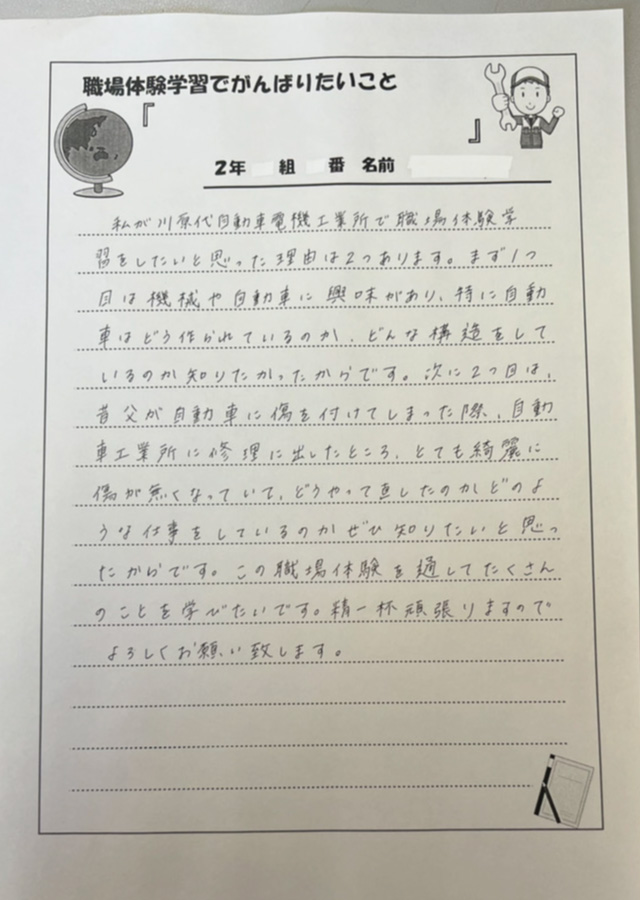 職場体験学習でがんばりたいこと
『
』
2年 組 番 名前
私が川原代自動車電機工業所で職場体験学
習をしたいと思った理由は2つあります。まず1つ
目は機械や自動車に興味があり、特に自動
車はどう作られているのか、どんな構造をして
いるのか知りたかったからです。次に2つ目は、
昔父が自動車に傷を付けてしまった際、自動
車工業所に修理に出したところ、とても綺麗に
傷が無くなっていて、どうやって直したのかどのよ
うな仕事をしているのかぜひ知りたいと思っ
たからです。この職場体験を通してたくさん
のことを学びたいです。精一杯頑張りますので
よろしくお願い致します。